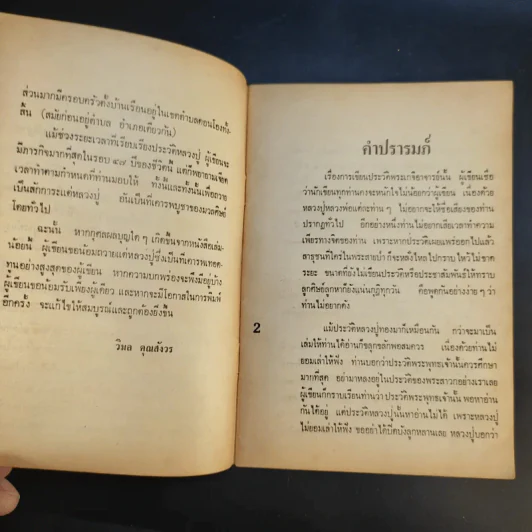 ส่วนมากมีครอบครัวตั้งบ้านเรือนอยู่ในเขตตำบลดอนโอง
สิ้น (สมัยก่อนอยู่ตำบล อำเภอเดียวกัน)
แม้ช่วงระยะเวลาที่เรียบเรียงประวัติหลวงปู่ ผู้เขียนจะ
มีภารกิจมากที่สุดในรอบ ๔๗ ปีของชีวิตนี้ แต่ก็พยายามเจียด
เวลาทำตามกำหนดที่ท่านมอบให้ ทั้งนี้และทั้งนั้นเพื่อถวาย
เป็นสักการะแด่หลวงปู่ อันเป็นที่เคารพบูชาของมวลศิษย์
โดยทั่วไป
ฉะนั้น หากกุศลผลบุญใดๆ เกิดขึ้นจากหนังสือเล่ม
น้อยนี้ ผู้เขียนขอน้อมถวายแด่หลวงปู่ซึ่งเป็นที่เคารพเทอด
ทูนอย่างสูงสุดของผู้เขียน หากความบกพร่องจะพึงมีอยู่บ้าง
ผู้เขียนขอน้อมรับเพียงผู้เดียว และหากจะมีโอกาสในการพิมพ์
อีกครั้ง จะแก้ไขให้สมบูรณ์และถูกต้องยิ่งขึ้น
วิมล คุณสังวร
2
คำปรารมภ์
เรื่องการเขียนประวัติพระเกจิอาจารย์นั้น ผู้เขียนเชื่อ
ว่านักเขียนทุกท่านคงจะหนักใจไม่น้อยกว่าผู้เขียน เนื่องด้วย
หลวงปู่หลวงพ่อแต่ละท่าน ๆ ไม่อยากจะให้ชื่อเสียงของท่าน
ปรากฏทั่วไป อีกอย่างหนึ่งท่านไม่อยากเสียเวลาทำความ
เพียรทางจิตของท่าน เพราะหากประวัติเผยแพร่ออกไปแล้ว
สาธุชนที่ใคร่ในพระสายป่า ก็จะหลั่งไหลไปกราบไหว้ ไม่ขาด
ระยะ ขนาดทั้งไม่เขียนประวัติหรือประชาสัมพันธ์ให้ทราบ
ลูกศิษย์ลูกหาก็ยังแน่นกุฏิทุกวัน คือพูดกันอย่างง่าย ๆ ว่า
ท่านไม่อยากดัง
แม้ประวัติหลวงปู่ทองมาก็เหมือนกัน กว่าจะมาเป็น
เล่มให้ท่านได้อ่านก็ขลุกขลักพอสมควร เนื่องด้วยท่านไม่
ยอมเล่าให้ฟัง ท่านบอกว่าประวัติพระพุทธเจ้านั้นควรศึกษา
มากที่สุด อย่ามาหลงอยู่ในประวัติของพระสาวกอย่างเราเลย
ผู้เขียนก็กราบเรียนท่านว่า ประวัติพระพุทธเจ้านั้น พอหาอ่าน
กันได้อยู่ แต่ประวัติหลวงปู่นั้นหาอ่านไม่ได้ เพราะหลวงปู่
ไม่ยอมเล่าให้ฟัง ขออย่าได้ปิดบังลูกหลานเลย หลวงปู่บอกว่า